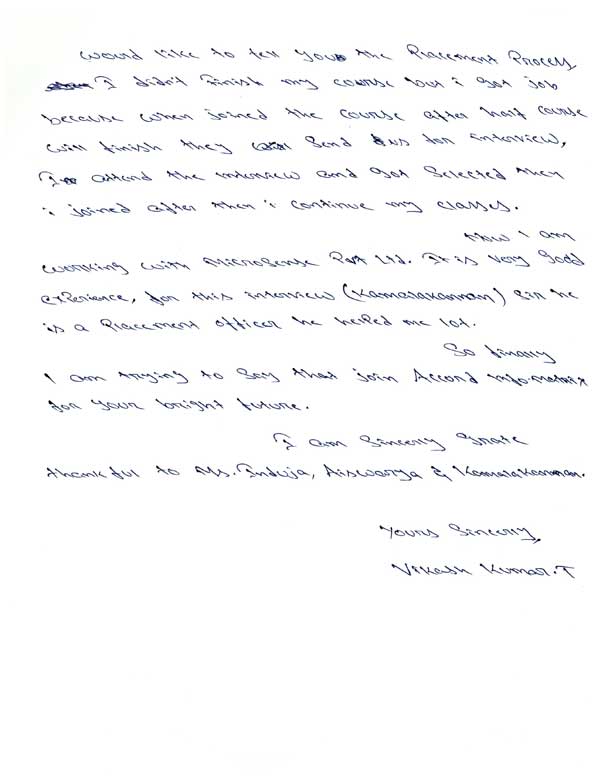 would like to tell you the Placement Process
I didn't finish my course but i got job
because when joined the course after half course
will finish they will send us for interview,
I attend the interview and got selected then
i joined after then i continue my classes.
Now I am
working with MicroSense Pvt Ltd. It is very good
experience, for this interview (Kamarakannan) Sir he
is a Placement officer he helped me lot.
So finally
I am trying to say that join Accord info matrix
for your bright future.
I am Sincerly
thankful to Ms. Induja, Aiswarya & Kamarakannan.
Yours Sincerly,
Vikash Kumar.T